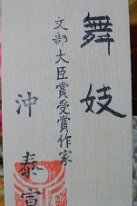 舞妓
文部大臣賞受賞作家
沖泰